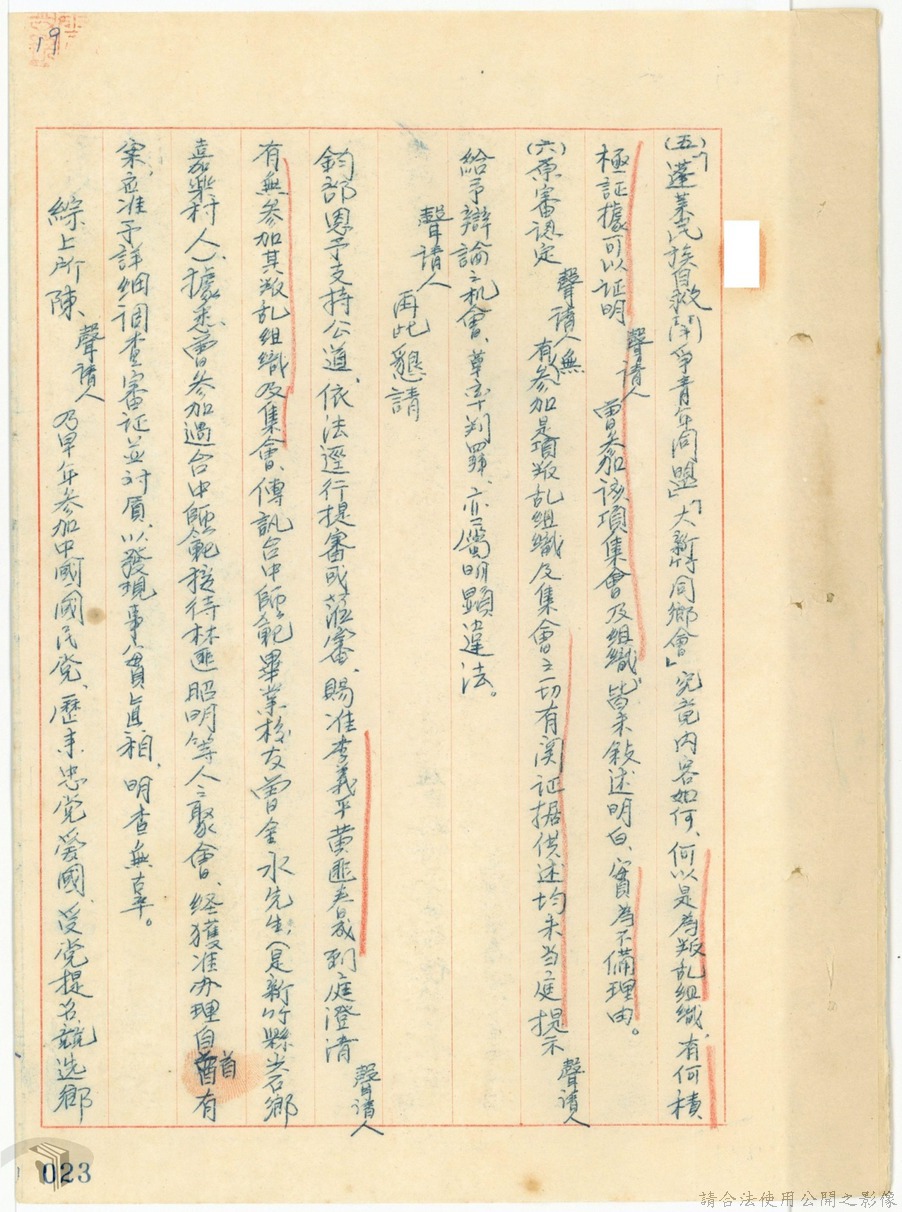 19
(五)「蓬萊民族自救鬥争青年同盟」「大新竹同鄉會」究竟内容如何、何以是為叛乱組織、有何積
極証據可以証明聲請人曾參加該項集會及組織、皆未敍述明白、實為不備理由。
(六)原審認定聲請人有無參加是項叛乱組織及集會之一切有関証据供述均未当庭提示聲請人
給予辯論之机會、草率判罪、亦屬明顕違法。
聲請人再此懇請
鈞部恩予支持公道、依法逕行提審或蒞審、賜准李義平黄匪春晟到庭澄清聲請人
有無參加其叛乱組織及集會、傳訊台中師範畢業校友曾金永先生、(是新竹縣岩鄉
嘉樂村人、據悉曾参加過台中師範接待林匪昭明等人之聚會、经獲准办理自首有
案、应准予詳细調查審证並对質、以發現事實真相、明查無辜。
綜上所陳、聲請人乃早年参加中國國民党、歷來忠党愛國、受党提名競选鄉
023
請合法使用公開之影像